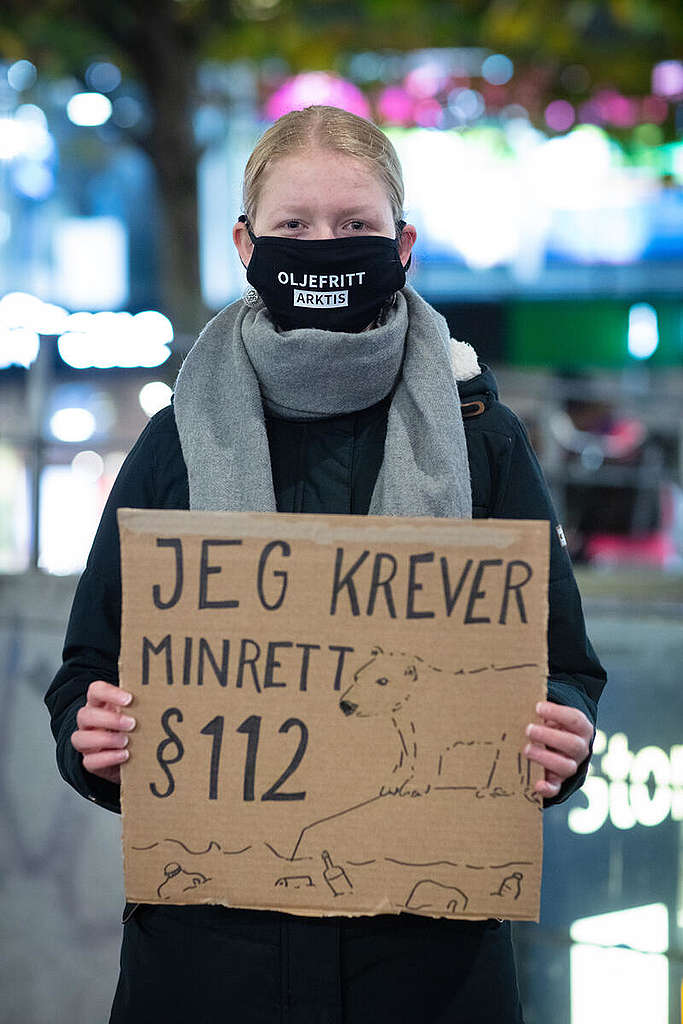 OLJEFRITT
ARKTIS
JEG KREVER
MINRETT
§112
Stor